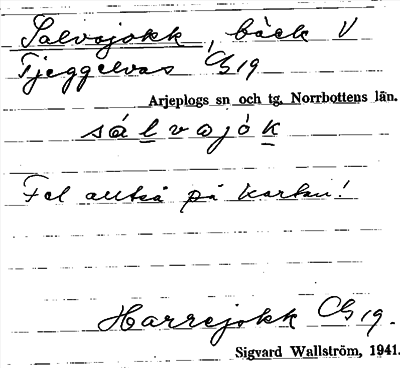 Salvojokk, bäck V
Tjeggelvas Cb 19
Arjeplogs sn och tg. Norrbottens län.
sálvojåk
Fel alltså på kartan!
Harrejokk Cb 19.
Sigvard Wallström, 1941.